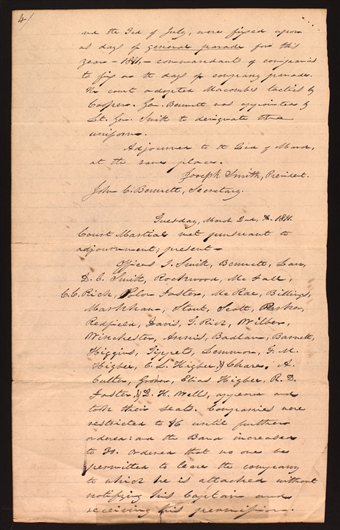 4/
and the 3rd of July, were fixed upon
as days of general parade for this
year - 1841 - commandants of companies
to fix on the days for company parade.
The court adopted Macombs tactics by
Cooper. Gen. Bennett was appointed by
Lt. Gen. Smith to designate the
uniform.
Adjourned to the 2nd of March,
at the same place.
Joseph Smith, President.
John C. Bennett, Secretary.
Tuesday, March 2nd, 1841.
Court Martial met pursuant to
adjournment, present -
Officers J. Smith, Bennett, Law,
D. C. Smith, Rockwood, Mc Fall,
C. C. Rich, Foster, Mc Rae, Billings,
Markham, Stout, Scott, Parker,
Redfield, Davis, T. Rich, Wilber,
Winchester, Annis, Badlam, Barnett,
Higgins, Tippets, Lemmon, F. M.
Higbee, C. L. Higbee, & Chares, A.
Cutler, Grover, Elias Higbee, R. D.
Foster, & D. H. Wells, appeared and
took their seats. Companies were
restricted to until further
orders: and the Band increased
to ordered that no one be
permitted to leave the company
to which he is attached without
notifying his Captain and
receiving his permission.